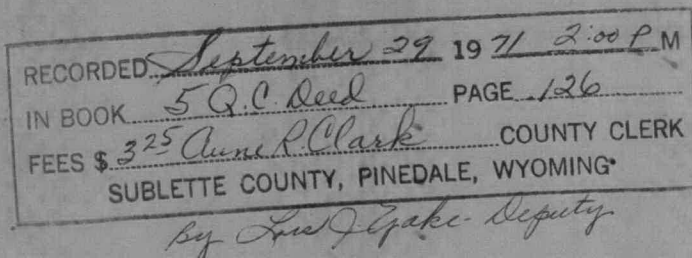 RECORDED September 29 1971 2:00 P.M
IN BOOK 5 Q.C. Deed PAGE 126
FEES $ 3 25 R. Clark COUNTY CLERK
SUBLETTE COUNTY, PINEDALE, WYOMING
By Deputy